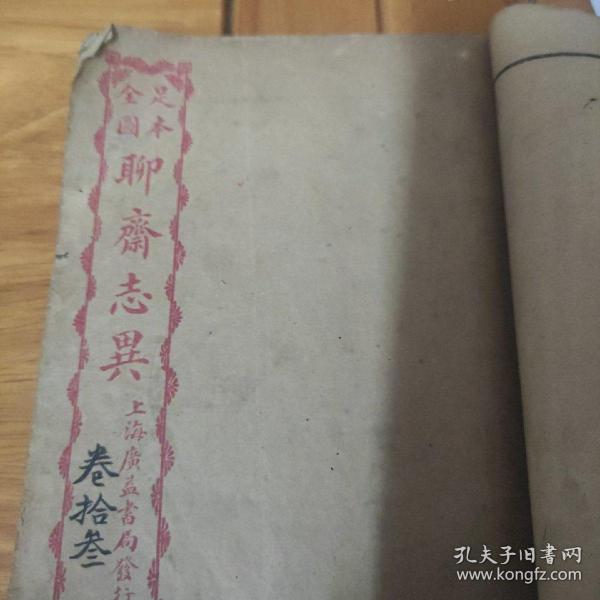 足本
全圖
聊齋志異
上海廣益書局發行
卷拾叁
孔夫子旧书网
www.kongfz.com